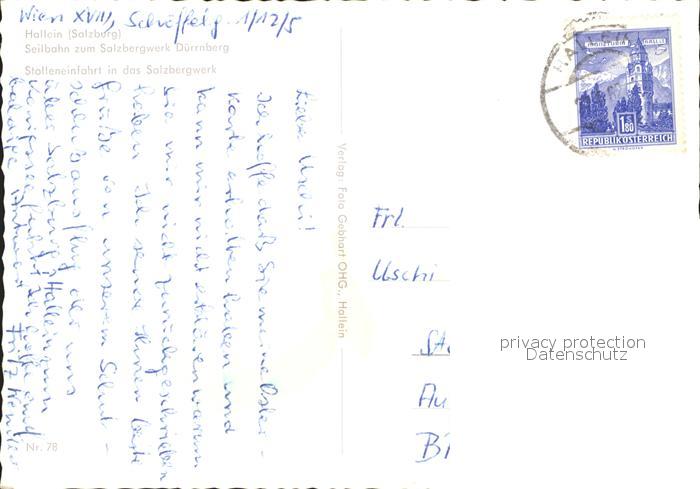 Wien XVIII, Scheffelg. 1/12/5
Hallein (Salzburg)
Seilbahn zum Salzbergwerk Dürrnberg
Stolleneinfahrt in das Salzbergwerk
Liebe Uschi!
Ich hoffe daß Sie meine Oster-
karte erhalten haben und
kann mir nicht erklären warum
Sie mir nicht zurückgeschrieben
haben. Ich sende Ihnen beste
Grüße von unserem Schul
der uns
über Salzburg, Hallein zum
Königssee führt. Ich hoffe auf
baldige Antwort
Fritz
Verlag: Foto Gebhart OHG., Hallein
Nr. 78
HALLEIN
MÜNZTURM HALL i. T.
1.80
REPUBLIK ÖSTERREICH
Frl.
Uschi
privacy protection
Datenschutz